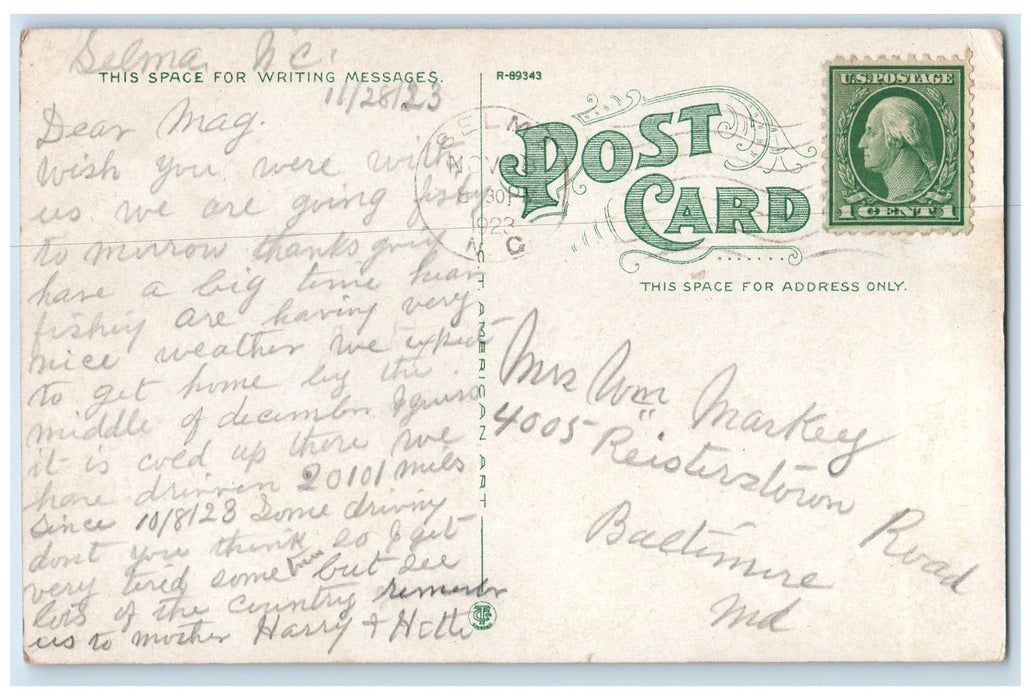 Selma, N.C.
THIS SPACE FOR WRITING MESSAGES.
11/28/23
Dear Mag.
wish you were with
us we are going
to morrow thanks
have a big time
fishing are having very
nice weather we expect
to get home by the
middle of december I guess
it is cold up there we
have drivven 20101 mils
since 10/8/23 Some driving
dont you think so I get
very tired some but see
lots of the country rember
us to mother Harry + Hette
R-89343
POST
CARD
U.S. POSTAGE
1 CENT 1
SELMA
NOV
30P
1923
N C
C.T. AMERICAN ART
THIS SPACE FOR ADDRESS ONLY.
Mrs Wm Markey
4005 Reisterstown
Road
Baltimire
Md